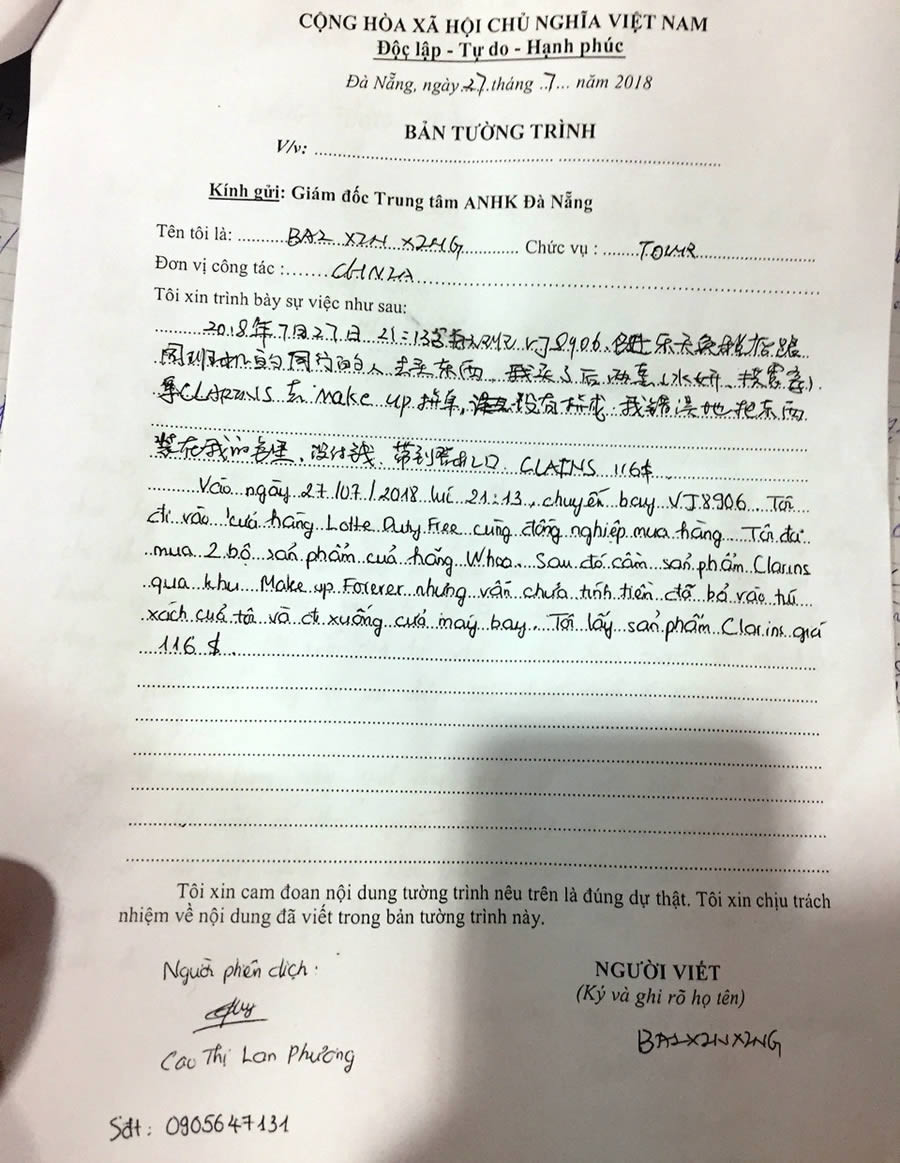 CỘNG HÒA XÃ HỘI CHỦ NGHĨA VIỆT NAM
Độc lập - Tự do - Hạnh phúc
Đà Nẵng, ngày 27 tháng 7 năm 2018
BẢN TƯỜNG TRÌNH
V/v:
Kính gửi: Giám đốc Trung tâm ANHK Đà Nẵng
Tên tôi là: BA2 X2N X2NG Chức vụ : TOUR
Đơn vị công tác : CHN2A
Tôi xin trình bày sự việc như sau:
2018年7月27日 21:13 VJ8906 乐天免税店跟
同班机的同行的人去买东西, 我买了后两套(水妍、
拿CLARINS 去 make up 拼单, 没有拼成 我错误地把东西
装在我的包里, 没付钱, 带到登机口 CLAINS 116$
Vào ngày 27/07/2018 lúc 21:13, chuyến bay VJ8906 Tôi
đi vào cửa hàng Lotte Duty Free cùng đồng nghiệp mua hàng Tôi đã
mua 2 bộ sản phẩm cuả hãng Whoo. Sau đó cầm sản phẩm Clarins
qua khu Make up Forever nhưng vẫn chưa tính tiền đã bỏ vào túi
xách cuả tôi và đi xuống cưả máy bay. Tôi lấy sản phẩm Clarins giá
116 $.
Tôi xin cam đoan nội dung tường trình nêu trên là đúng dự thật. Tôi xin chịu trách
nhiệm về nội dung đã viết trong bản tường trình này.
Người phiên dịch :
NGƯỜI VIẾT
(Ký và ghi rõ họ tên)
Cao Thị Lan Phương
BA2X2NX2NG
Sđt : 0905647131